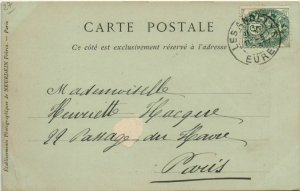 27
CARTE POSTALE
Ce côté est exclusivement réservé à l'adresse
LES ANDELYS
EURE
Mademoiselle
Henriette Hacque
22 Passage du Havre
Paris
Etablissements Photographiques de NEURDEIN Frères. — Paris